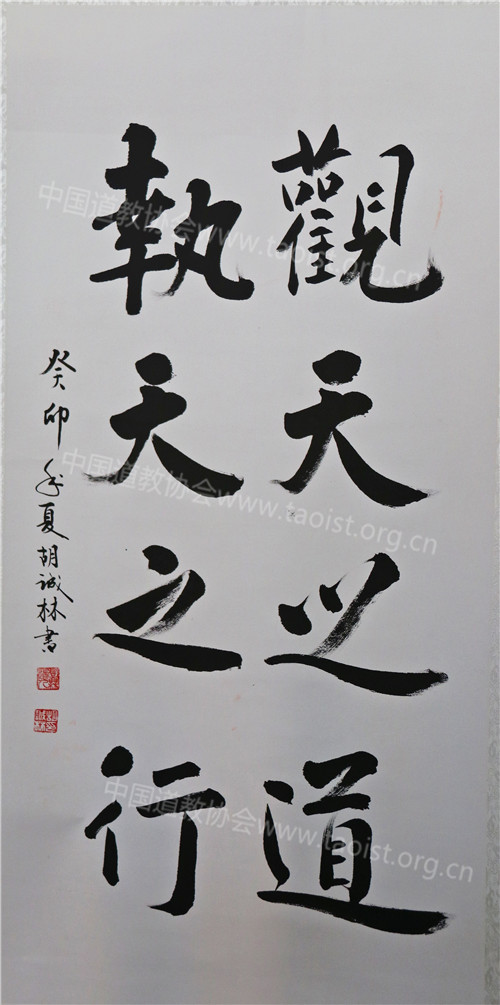 觀天之道
執天之行
癸卯年夏胡誠林書
中国道教协会www.taoist.org.cn
中国道教协会www.taoist.org.cn
中国道教协会www.taoist.org.cn